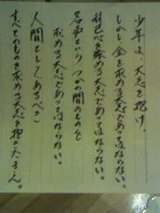 少年よ、大志を抱け。
しかし金を求める大志であってはならない。
利己心を求める大志であってはならない。
名声という、つかの間のものを
求める大志であってはならない。
人間としてあるべき
すべてのものを求める大志を抱きたまえ。